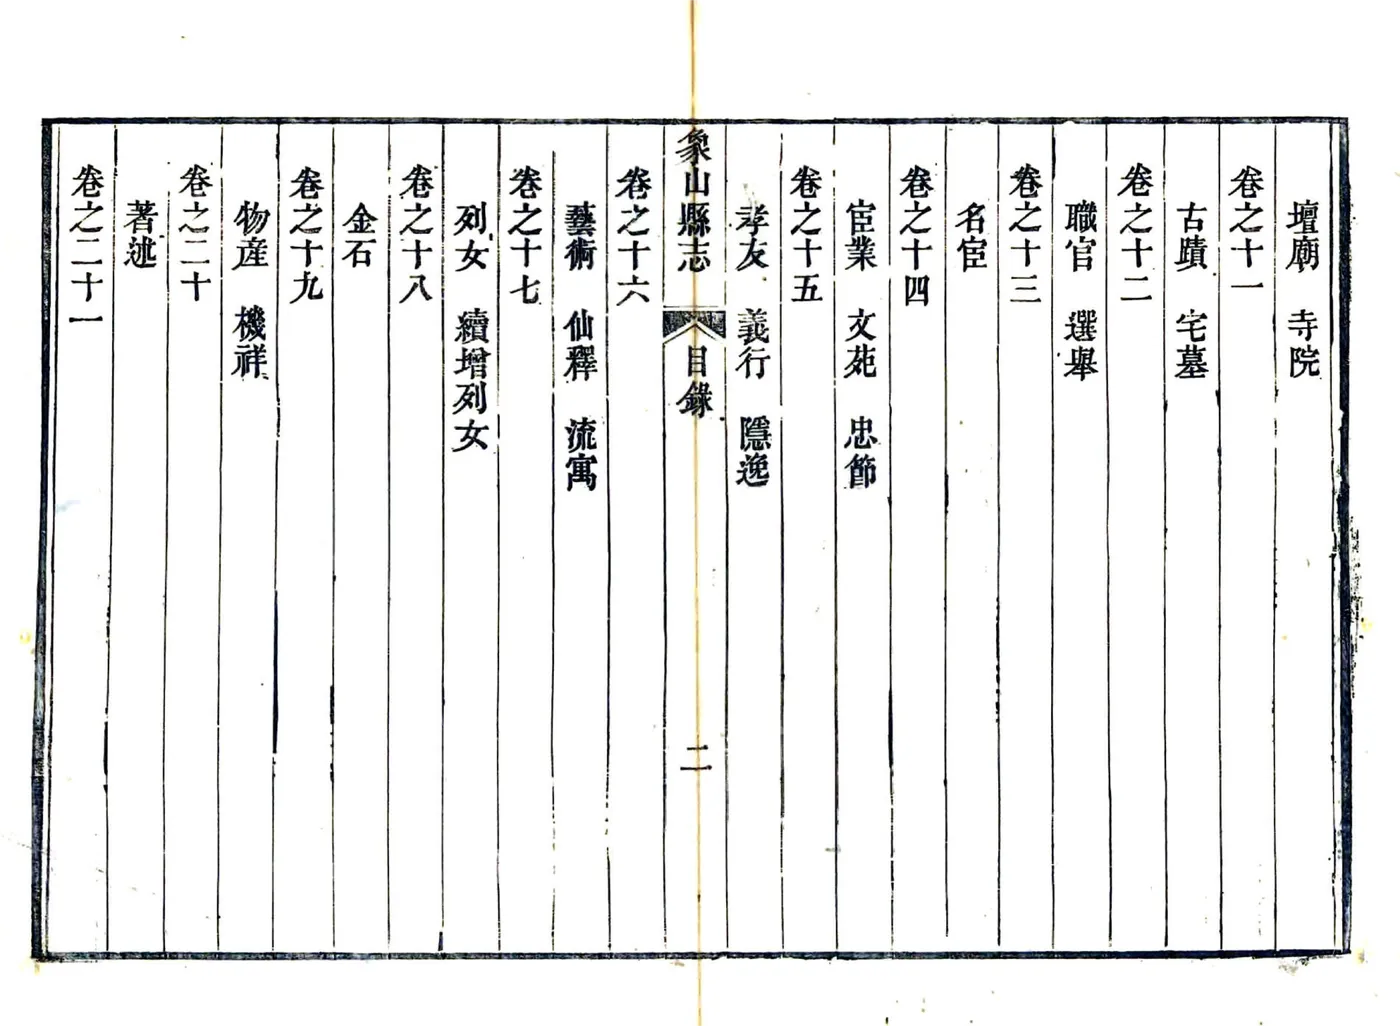 壇廟　寺院
卷之十一
古蹟　宅墓
卷之十二
職官　選舉
卷之十三
名宦
卷之十四
宦業　文苑　忠節
卷之十五
孝友　義行　隱逸
象山縣志　目錄　二
卷之十六
藝術　仙釋　流寓
卷之十七
列女　續增列女
卷之十八
金石
卷之十九
物産　機祥
卷之二十
著述
卷之二十一